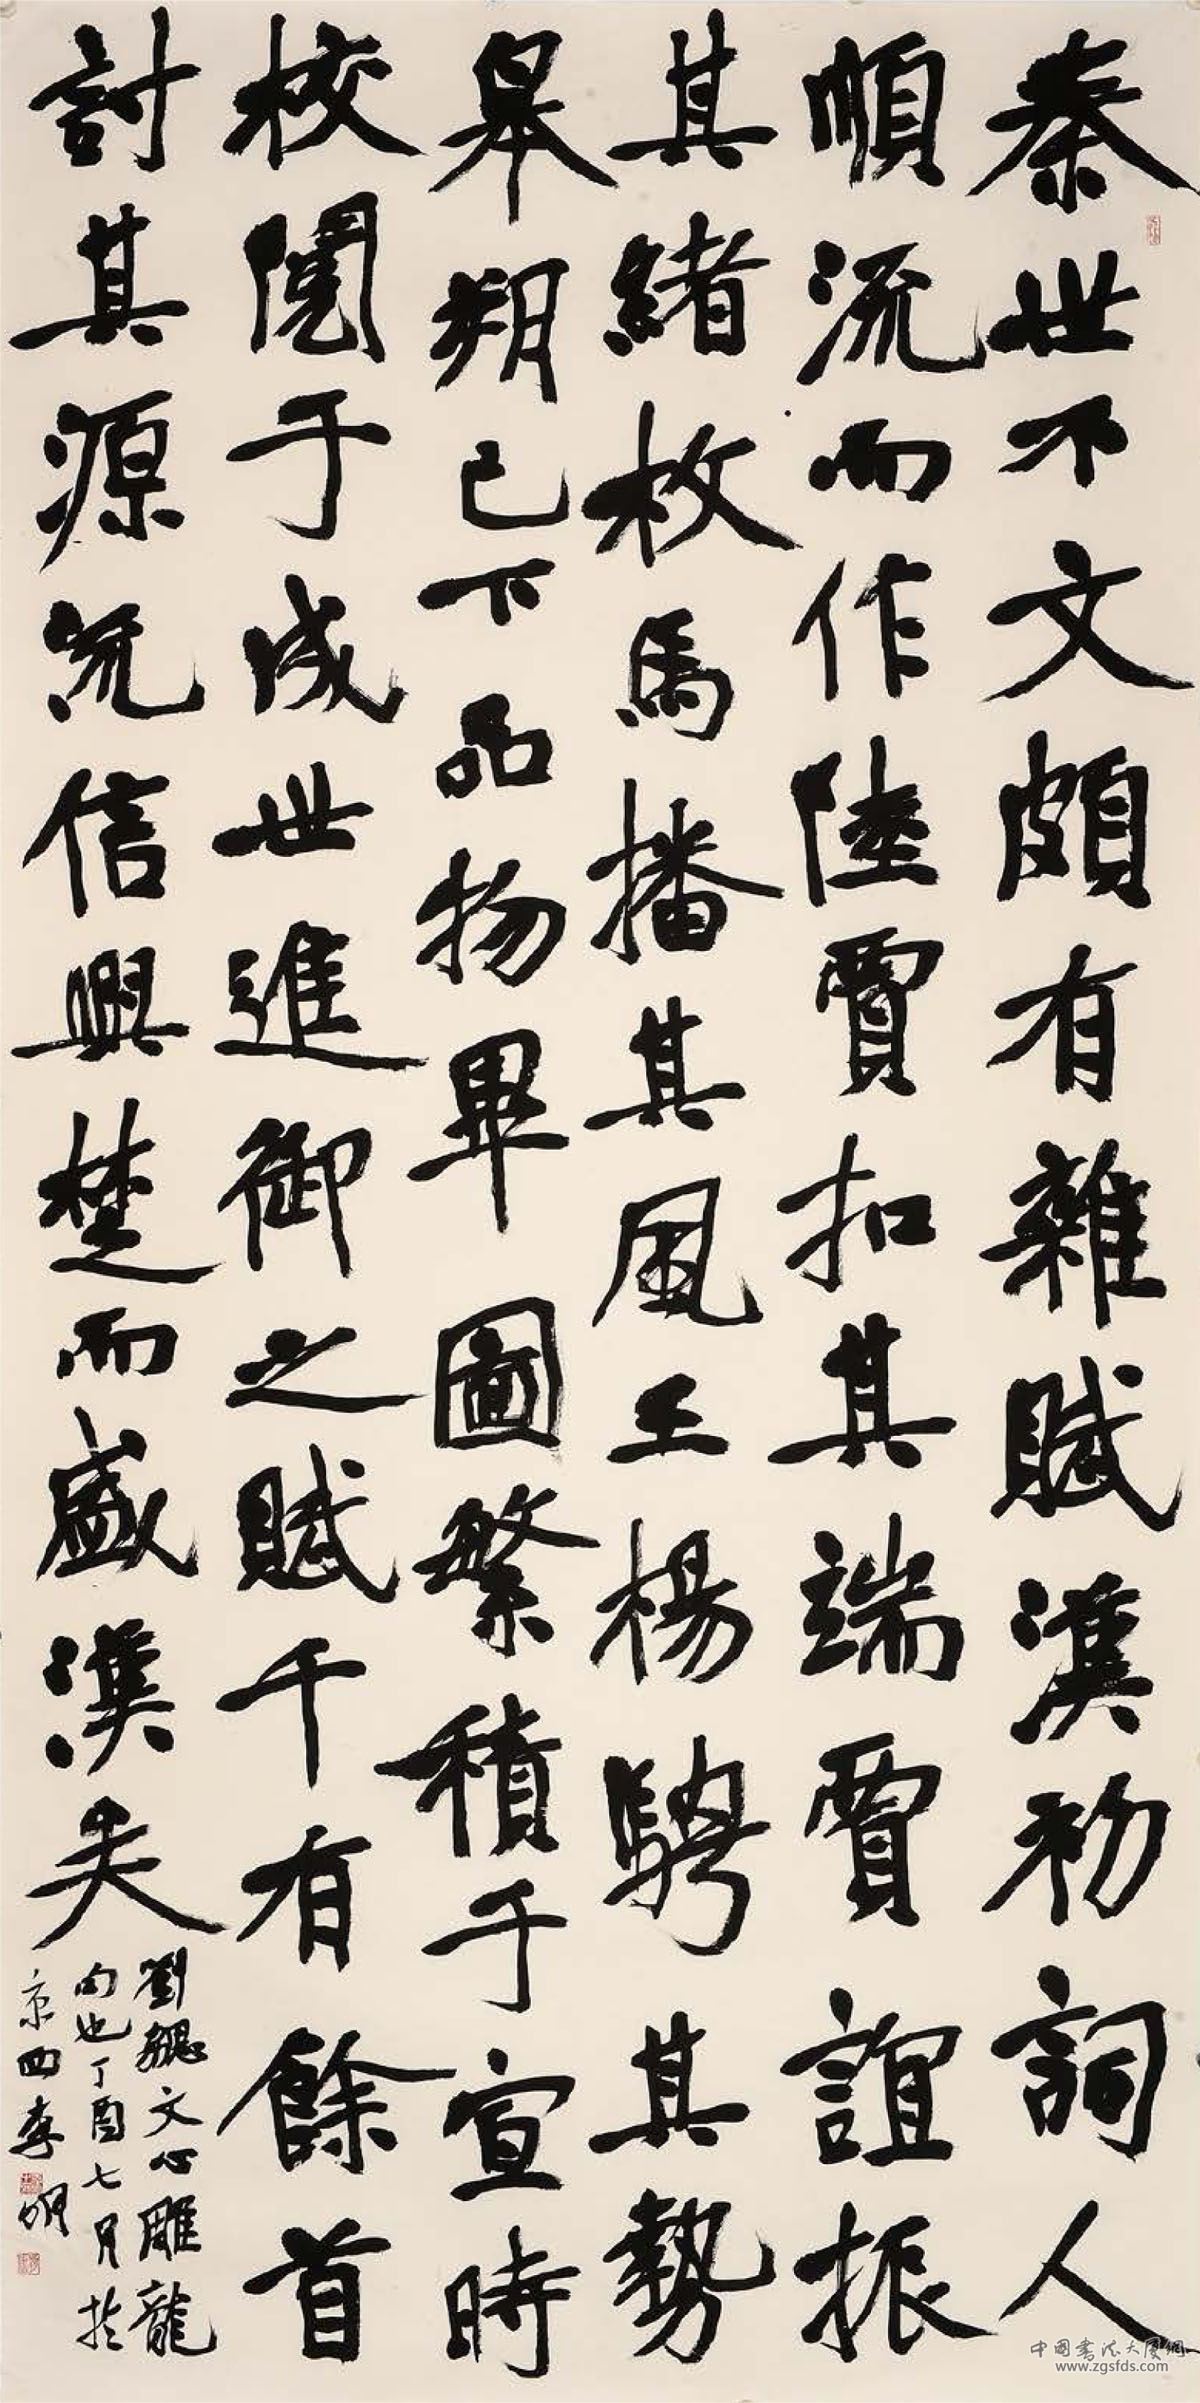 秦世不文頗有雜賦漢初詞人
順流而作陸賈扣其端賈誼振
其緒枚馬播其風王楊騁其勢
皋朔已下品物畢圖繁積于宣時
校閱于成世進御之賦千有餘首
討其源流信興楚而盛漢矣
劉勰文心雕龍
句也丁酉七月於
京西李明
中国书法大厦網
www.zgsfds.com